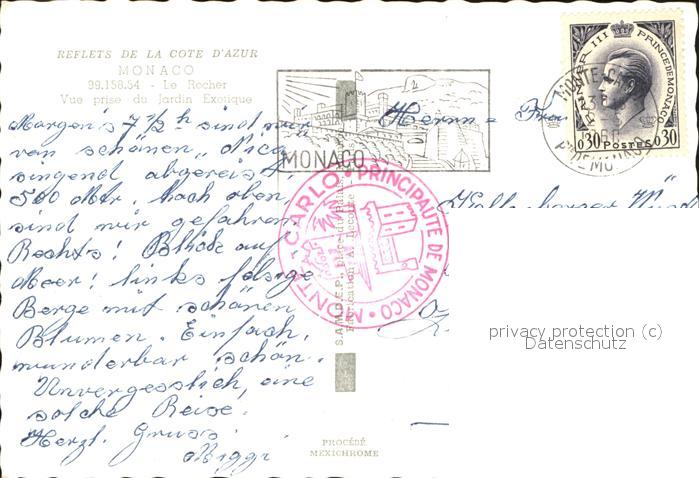 REFLETS DE LA COTE D'AZUR
MONACO
99.158.54 - Le Rocher
Vue prise du Jardin Exotique
Morgens 7 1/2 h sind wir
von schönen
singend abgereist
500 Mtr. hoch oben,
sind wir gefahren.
Rechts! Blick auf
Meer! links felsige
Berge mit schönen
Blumen. Einfach,
wunderbar schön.
Unvergesslich, eine
solche Reise.
Herzl. Gruss.
MONACO
MONTE-CARLO • PRINCIPAUTÉ DE MONACO •
PROCÉDÉ
MEXICHROME
Herrn = Frau
RAINIER III PRINCE DE MONACO
0,30 POSTES 0,30
MONTE-CARLO
privacy protection (c)
Datenschutz